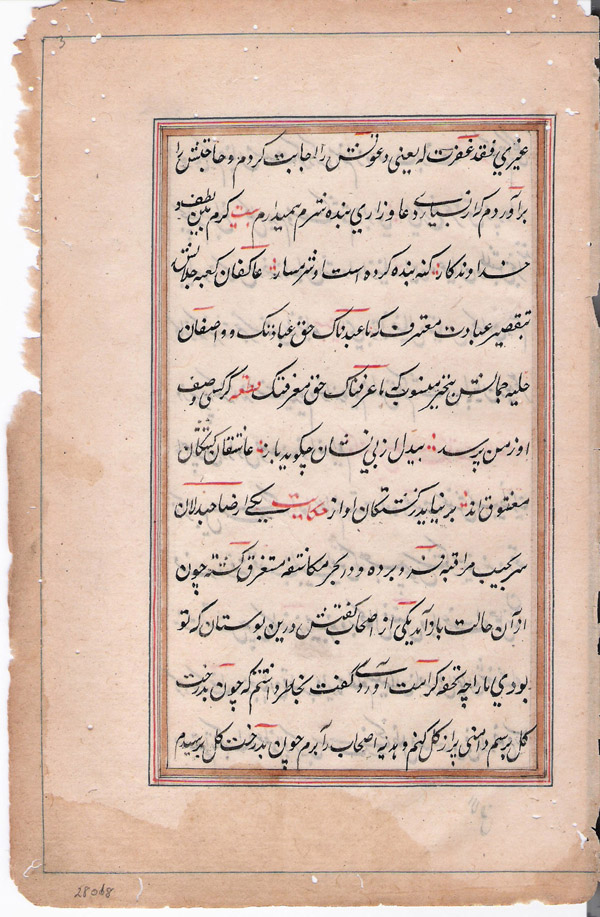 3
غیری فقد غفرت له یعنی دعوتش را اجابت کردم و حاجتش را
برآوردم که از بسیاری دعا و زاری بنده شرم همیدارم بیت کرم بین و لطف
خداوندکار گنه بنده کرده است او شرمسار عاکفان کعبه جلالش
بتقصیر عبادت معترف که ما عبدناک حق عبادتک و واصفان
حلیه جمالش بتحیر منسوب که ما عرفناک حق معرفتک قطعه گر کسی وصف
او ز من پرسد بیدل از بی نشان چگوید باز عاشقان کشتکان
معشوق اند بر نیاید ز کشتکان آواز حکایت یکی از صاحبدلان
سر بجیب مراقبه فرو برده و در بحر مکاشفه مستغرق گشته چون
از آن حالت باز آمد یکی از اصحاب گفتش درین بوستان که تو
بودی ما را چه تحفه کرامت آوردی گفت بخاطر داشتم که چون بدرخت
گل برسم دامنی پر از گل کنم و هدیه اصحاب را برم چون بدرخت گل برسیدم
28068